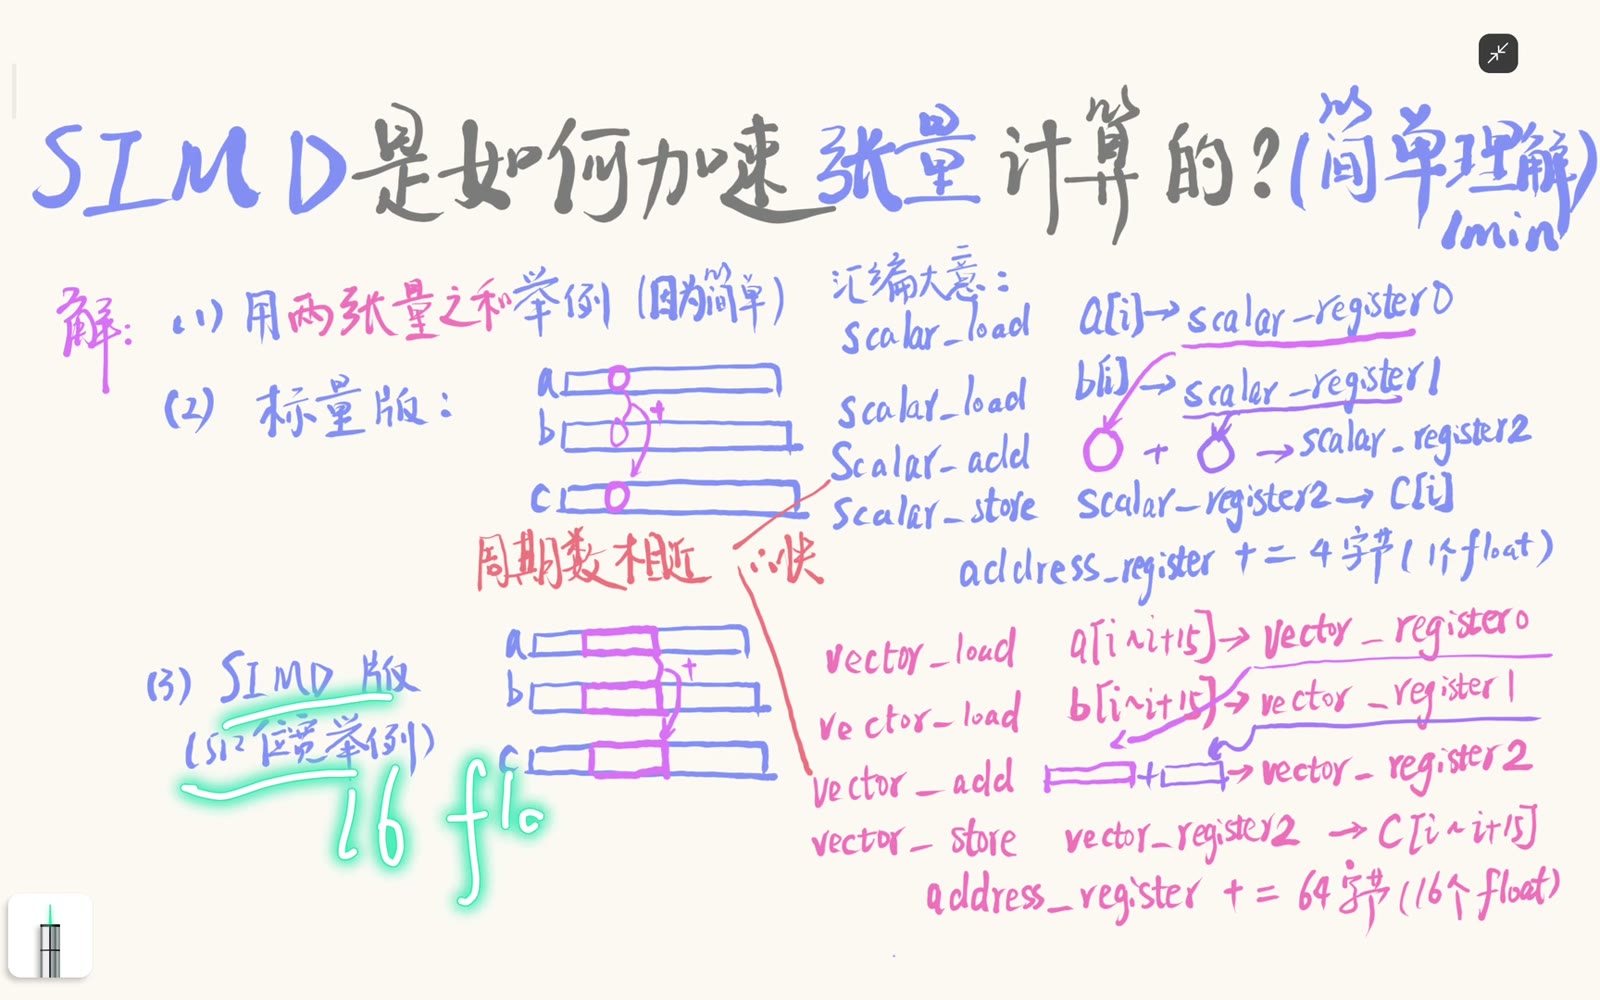 SIMD是如何加速张量计算的?(简单理解)
1min
解: (1) 用两张量之和举例 (因为简单)
(2) 标量版:
a
b
+
c
汇编大意:
scalar_load a[i]→scalar_register0
scalar_load b[i]→scalar_register1
scalar_add + →scalar_register2
scalar_store scalar_register2→C[i]
address_register += 4字节(1个float)
周期数相近 ∴快
(3) SIMD 版
(512位宽举例)
16 flo
a
b
+
c
vector_load a[i~i+15]→vector_register0
vector_load b[i~i+15]→vector_register1
vector_add + →vector_register2
vector_store vector_register2 →C[i~i+15]
address_register += 64字节(16个float)